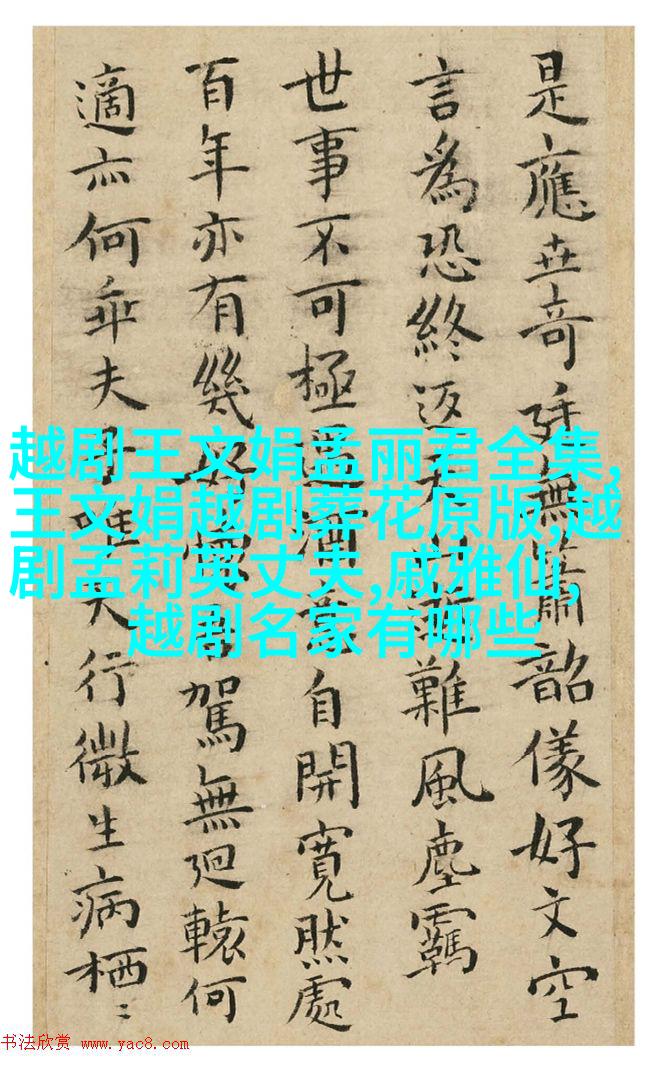 是應世奇
無簫韶儀好文空
言為恐終返
難風塵羈
世事不可極
自開寬然處
百年亦有幾
駕無迴轅何
適亦何乖夫
行微生病栖〻
越剧王文娟孟丽君全集,
王文娟越剧葬花原版,越
剧孟莉英丈夫,戚雅仙,
越剧名家有哪些
书法欣赏 www.yac8.com